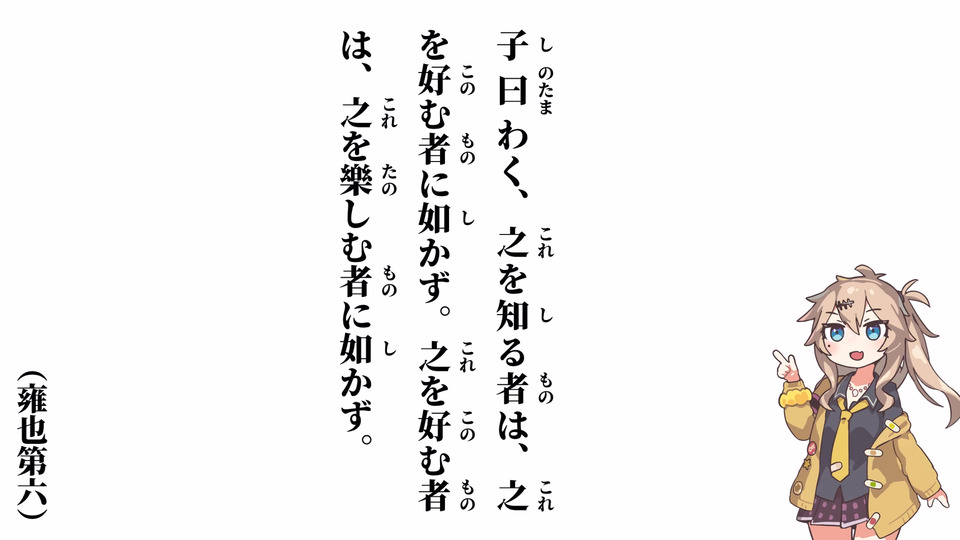 子曰わく、之を知る者は、之
を好む者に如かず。之を好む者
は、之を樂しむ者に如かず。
し のたま これ し もの これ
この もの し これ この もの
これ たの もの し
(雍也第六)